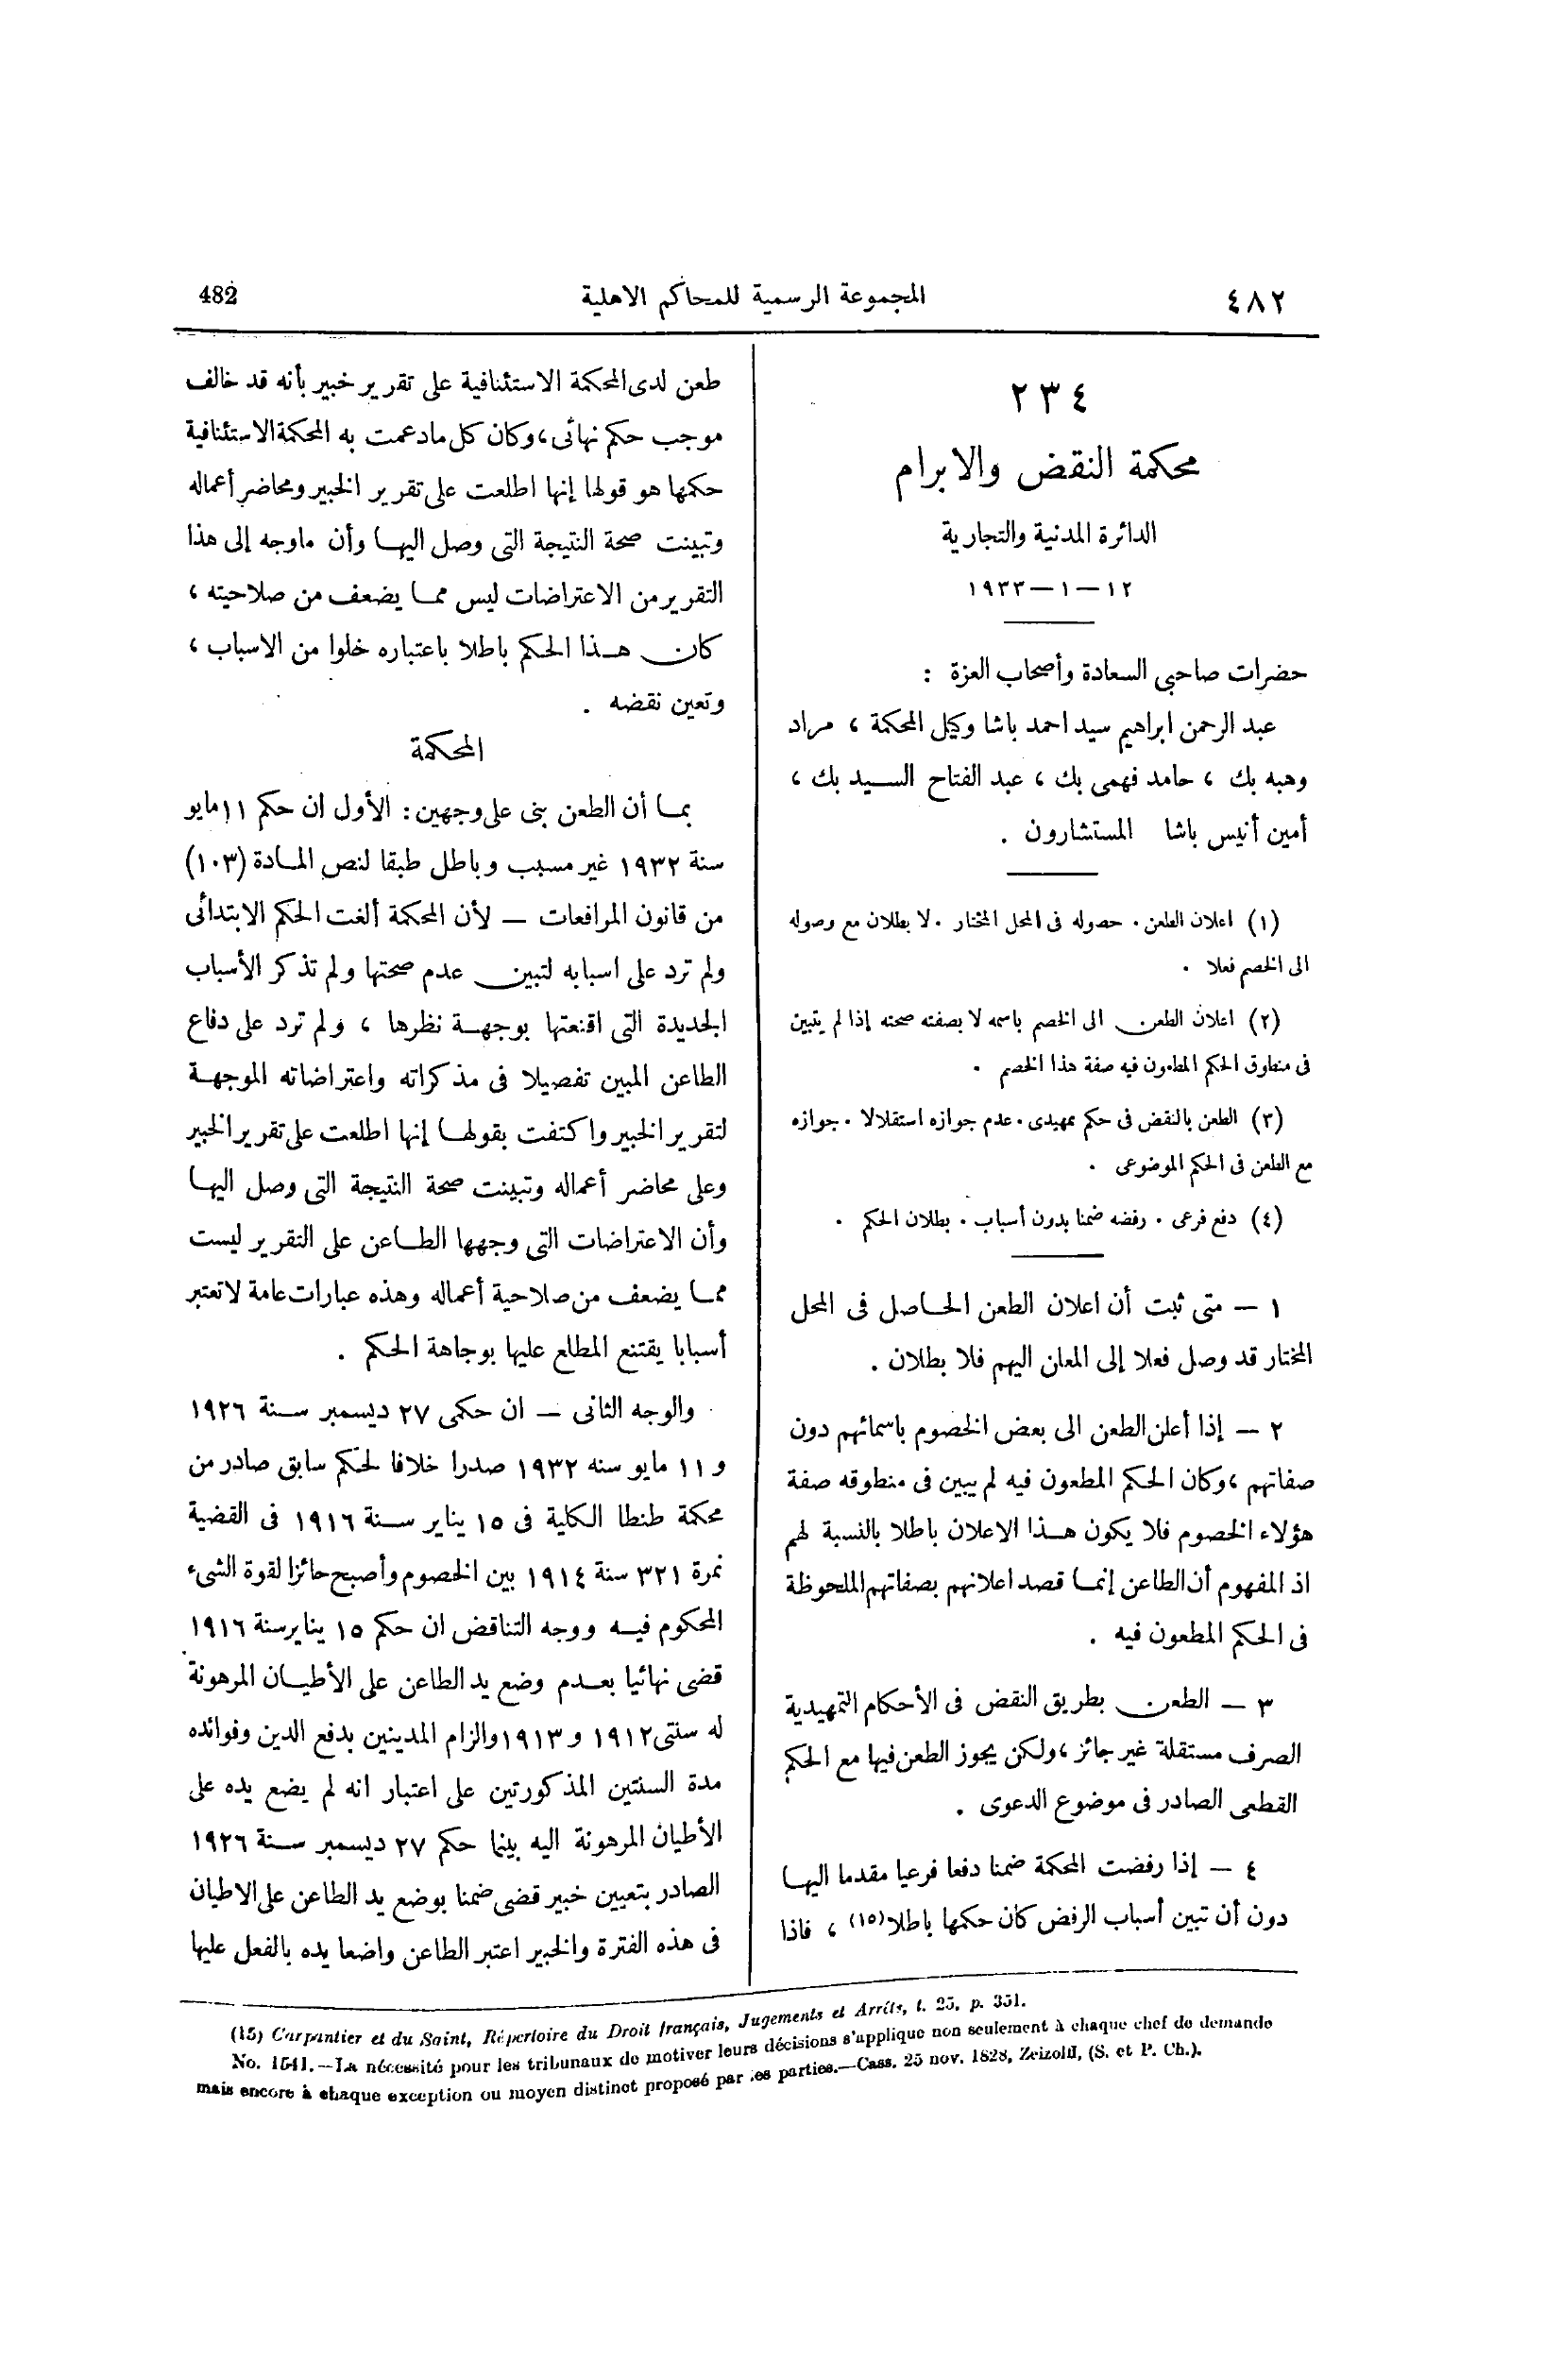 ٤٨٢
المجموعة الرسمية للمحاكم الاهلية
482
٢٣٤
محكمة النقض والابرام
الدائرة المدنية والتجارية
١٢ — ١ — ١٩٣٣
حضرات صاحبى السعادة وأصحاب العزة :
عبد الرحمن ابراهيم سيد احمد باشا وكيل المحكمة ، مراد
وهبه بك ، حامد فهمى بك ، عبد الفتاح السيد بك ،
أمين أنيس باشا المستشارون .
(١) اعلان الطعن . حصوله فى المحل المختار . لا بطلان مع وصوله
الى الخصم فعلا .
(٢) اعلان الطعن الى الخصم باسمه لا بصفته صحته إذا لم يتبين
فى منطوق الحكم المطعون فيه صفة هذا الخصم .
(٣) الطعن بالنقض فى حكم تمهيدى . عدم جوازه استقلالا . جوازه
مع الطعن فى الحكم الموضوعى .
(٤) دفع فرعى . رفضه ضمنا بدون أسباب . بطلان الحكم .
١ — متى ثبت أن اعلان الطعن الحاصل فى المحل
المختار قد وصل فعلا إلى المعلن اليهم فلا بطلان .
٢ — إذا أعلن الطعن الى بعض الخصوم باسمائهم دون
صفاتهم ، وكان الحكم المطعون فيه لم يبين فى منطوقه صفة
هؤلاء الخصوم فلا يكون هذا الاعلان باطلا بالنسبة لهم
اذ المفهوم أن الطاعن إنما قصد اعلانهم بصفاتهم الملحوظة
فى الحكم المطعون فيه .
٣ — الطعن بطريق النقض فى الأحكام التمهيدية
الصرف مستقلة غير جائز ، ولكن يجوز الطعن فيها مع الحكم
القطعى الصادر فى موضوع الدعوى .
٤ — إذا رفضت المحكمة ضمنا دفعا فرعيا مقدما اليها
دون أن تبين أسباب الرفض كان حكمها باطلا (١٥) ، فاذا
طعن لدى المحكمة الاستئنافية على تقرير خبير بأنه قد خالف
موجب حكم نهائى ، وكان كل مادعمت به المحكمة الاستئنافية
حكمها هو قولها إنها اطلعت على تقرير الخبير ومحاضر أعماله
وتبينت صحة النتيجة التى وصل اليها وأن ماوجه إلى هذا
التقرير من الاعتراضات ليس مما يضعف من صلاحيته ،
كان هذا الحكم باطلا باعتباره خلوا من الاسباب ،
وتعين نقضه .
المحكمة
بما أن الطعن بنى على وجهين : الأول ان حكم ١١ مايو
سنة ١٩٣٢ غير مسبب وباطل طبقا لنص المادة (١٠٣)
من قانون المرافعات — لأن المحكمة ألغت الحكم الابتدائى
ولم ترد على اسبابه لتبين عدم صحتها ولم تذكر الأسباب
الجديدة التى اقنعتها بوجهة نظرها ، ولم ترد على دفاع
الطاعن المبين تفصيلا فى مذكراته واعتراضاته الموجهة
لتقرير الخبير واكتفت بقولها إنها اطلعت على تقرير الخبير
وعلى محاضر أعماله وتبينت صحة النتيجة التى وصل اليها
وأن الاعتراضات التى وجهها الطاعن على التقرير ليست
مما يضعف من صلاحية أعماله وهذه عبارات عامة لا تعتبر
أسبابا يقتنع المطلع عليها بوجاهة الحكم .
والوجه الثانى — ان حكمى ٢٧ ديسمبر سنة ١٩٢٦
و ١١ مايو سنه ١٩٣٢ صدرا خلافا لحكم سابق صادر من
محكمة طنطا الكلية فى ١٥ يناير سنة ١٩١٦ فى القضية
نمرة ٣٢١ سنة ١٩١٤ بين الخصوم وأصبح حائزا لقوة الشىء
المحكوم فيه ووجه التناقض ان حكم ١٥ يناير سنة ١٩١٦
قضى نهائيا بعدم وضع يد الطاعن على الأطيان المرهونة
له سنتى ١٩١٢ و ١٩١٣ والزام المدينين بدفع الدين وفوائده
مدة السنتين المذكورتين على اعتبار انه لم يضع يده على
الأطيان المرهونة اليه بينما حكم ٢٧ ديسمبر سنة ١٩٢٦
الصادر بتعيين خبير قضى ضمنا بوضع يد الطاعن على الاطيان
فى هذه الفترة والخبير اعتبر الطاعن واضعا يده بالفعل عليها
(15) Carpantier et du Saint, Répertoire du Droit français, Jugements et Arrêts, t. 25, p. 351.
No. 1541.—La nécessité pour les tribunaux de motiver leurs décisions s'applique non seulement à chaque chef de demande
mais encore à chaque exception ou moyen distinct proposé par les parties.—Cass. 25 nov. 1828, (S. et P. Ch.).